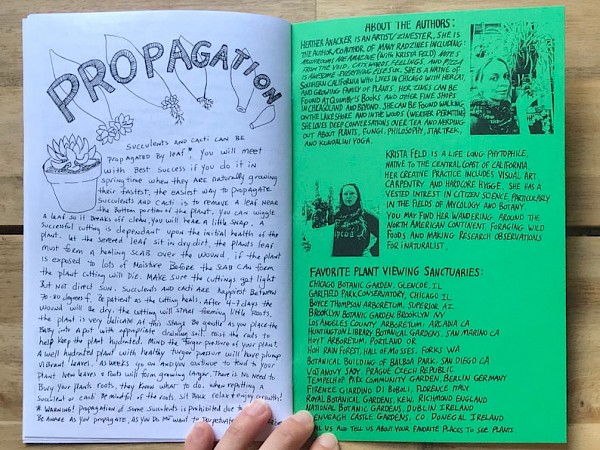 PROPAGATION
Succulents and cacti can be
propagated by leaf * you will meet
with best success if you do it in
springtime when they are naturally growing
their fastest. the easiest way to propagate
succulents and cacti is to remove a leaf near
the bottom portion of the plant. You can wiggle
a leaf so it breaks off clean. you will hear a little snap. A
successful cutting is dependant upon the initial health of the
plant. let the severed leaf sit in dry dirt, the plants leaf
must form a healing scab over the wound, if the plant
is exposed to lots of moisture before the scab can form
the plant cutting will die. Make sure the cuttings get light
but not direct sun. succulents and cacti are happiest between
70-80 degrees f. Be patient as the cutting heals. After 4-7 days the
wound will be dry. the cutting will start forming little roots.
the plant is very delicate at this stage. Be gentle as you place the
baby into a pot with appropriate draining soil. mist the roots to
help keep the plant hydrated. Mind the turgor pressure of your plant.
A well hydrated plant with healthy turgor pressure will have plump
vibrant leaves. As weeks go on the roots continue to
plant new leaves & roots will form growing larger. There is no need to
bury your plants roots, they know what to do. when repotting a
succulent or cacti be mindful of the roots. sit back relax & enjoy growth!
* WARNING! propagation of some succulents is prohibited due to
Be aware as you propagate, as you do not want to perpetuate
ABOUT THE AUTHORS:
HEATHER ANACKER IS AN ARTIST/ZINESTER, SHE IS
THE AUTHOR/COAUTHOR OF MANY RADZINES INCLUDING:
MUSHROOMS ARE AMAZING (WITH KRISTA FELD)
FROM THE VOID, CATS HANDS, FEELINGS, AND PIZZA
IS AWESOME-EVERYTHING ELSE SUX. SHE IS A NATIVE OF
SOUTHERN CALIFORNIA WHO LIVES IN CHICAGO WITH HER CAT,
AND GROWING FAMILY OF PLANTS. HER ZINES CAN BE
FOUND AT QUIMBY'S BOOKS AND OTHER FINE SHOPS
IN CHICAGOLAND AND BEYOND. SHE CAN BE FOUND WALKING
ON THE LAKE SHORE AND IN THE WOODS (WEATHER PERMITTING)
SHE LOVES DEEP CONVERSATIONS OVER TEA AND NERDING
OUT ABOUT PLANTS, FUNGI, PHILOSOPHY, STAR TREK,
AND KUNDALINI YOGA.
KRISTA FELD IS A LIFE LONG PHYTOPHILE,
NATIVE TO THE CENTRAL COAST OF CALIFORNIA.
HER CREATIVE PRACTICE INCLUDES VISUAL ART
CARPENTRY AND HARDCORE HYGGE. SHE HAS A
VESTED INTEREST IN CITIZEN SCIENCE, PARTICULARLY
IN THE FIELDS OF MYCOLOGY AND BOTANY.
YOU MAY FIND HER WANDERING AROUND THE
NORTH AMERICAN CONTINENT, FORAGING WILD
FOODS AND MAKING RESEARCH OBSERVATIONS
FOR iNATURALIST.
FAVORITE PLANT VIEWING SANCTUARIES:
CHICAGO BOTANIC GARDEN, GLENCOE, IL
GARFIELD PARK CONSERVATORY, CHICAGO IL
BOYCE THOMPSON ARBORETUM, SUPERIOR AZ
BROOKLYN BOTANIC GARDEN BROOKLYN NY
LOS ANGELES COUNTY ARBORETUM, ARCADIA CA
HUNTINGTON LIBRARY BOTANICAL GARDENS, SAN MARINO CA
HOYT ARBORETUM, PORTLAND OR
HOH RAIN FOREST, HALL OF MOSSES, FORKS WA
BOTANICAL BUILDING OF BALBOA PARK, SAN DIEGO CA
VOJANOVY SADY, PRAGUE CZECH REPUBLIC
TEMPELHOF PARK COMMUNITY GARDEN, BERLIN GERMANY
FIRENZE GIARDINO DI BOBOLI, FLORENCE ITALY
ROYAL BOTANICAL GARDENS, KEW, RICHMOND ENGLAND
NATIONAL BOTANIC GARDENS, DUBLIN IRELAND
GLENVEAGH CASTLE GARDENS, CO. DONEGAL IRELAND
US AND TELL US ABOUT YOUR FAVORITE PLACES TO SEE PLANTS